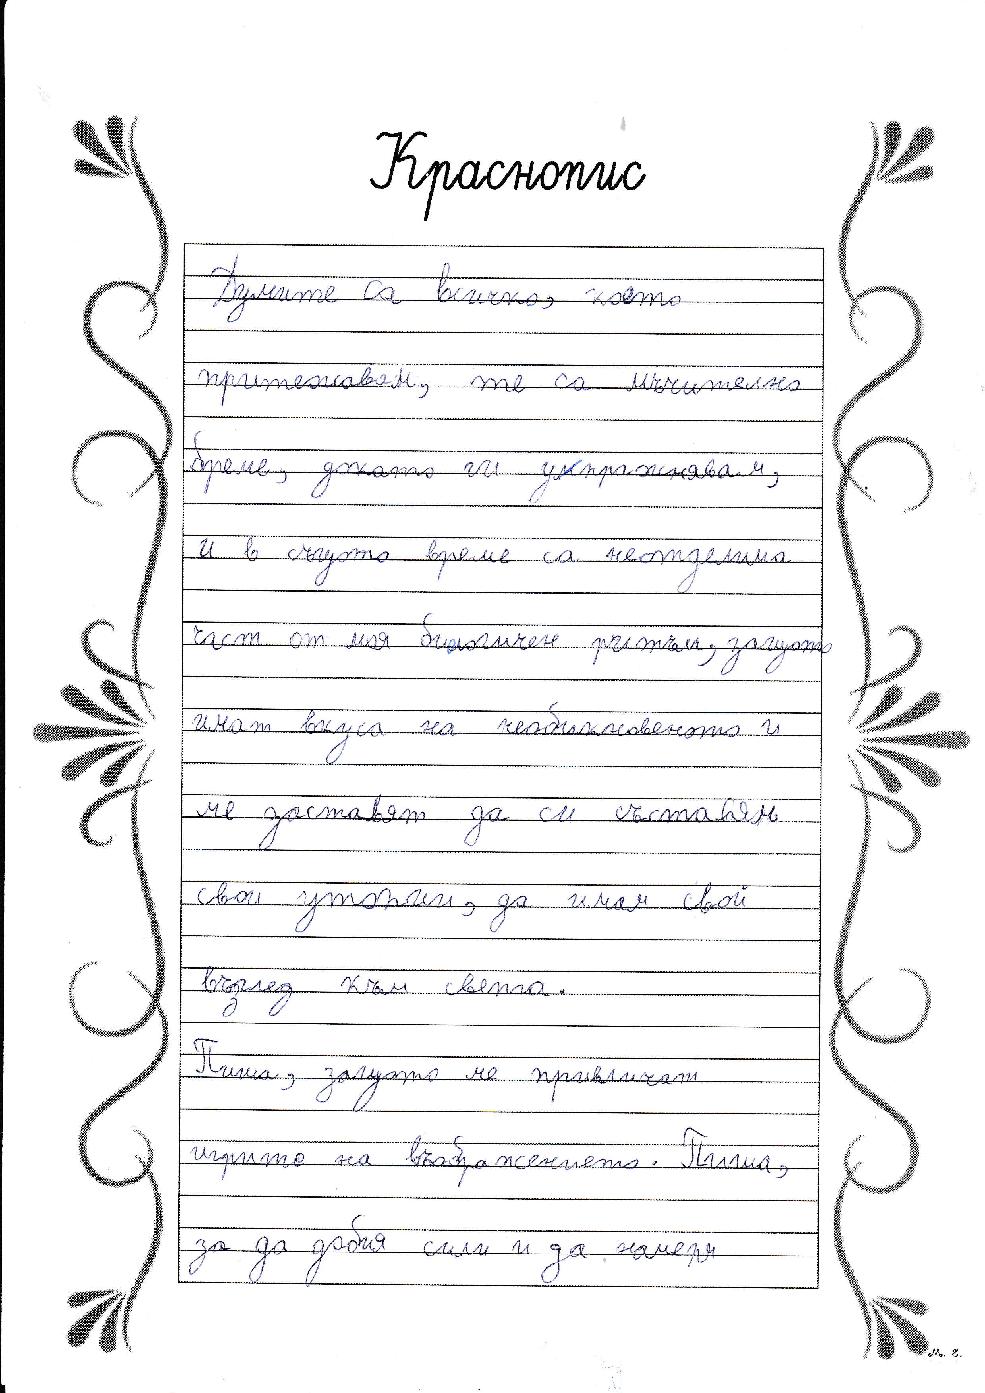 Краснопис
Думите са всичко, което
притежавам, те са мъчително
бреме, докато ги укротявам,
и в същото време са неотделима
част от моя биологичен ритъм, защото
имат вкуса на необикновеното и
ме заставят да си съставям
свои утопии, да имам свой
възглед към света.
Пиша, защото ме привличат
игрите на въображението. Пиша,
за да добия сили и да намеря
м. г.